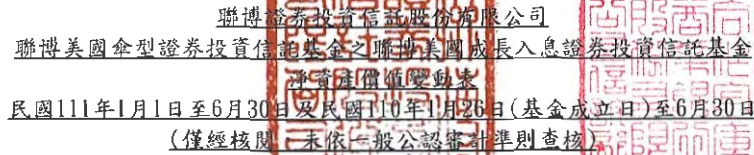 聯博證券投資信託股份有限公司
聯博美國傘型證券投資信託基金之聯博美國成長入息證券投資信託基金
淨資產價值變動表
民國111年1月1日至6月30日及民國110年1月26日(基金成立日)至6月30日
(僅經核閱，未依一般公認審計準則查核)